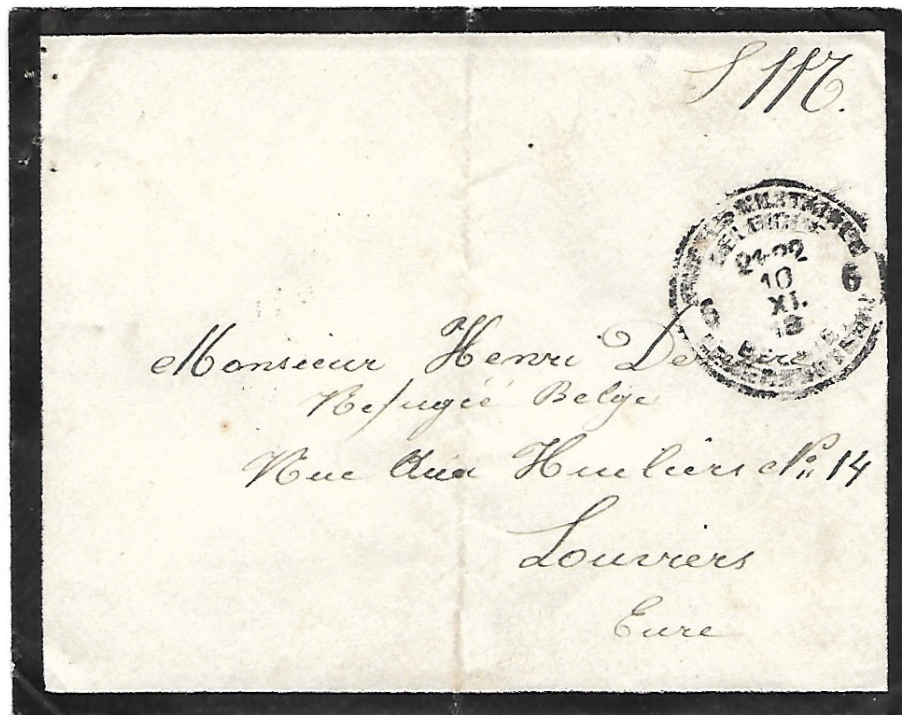 S M.
POSTES MILITAIRES
BELGIQUE
21-22
10
XI.
18
6 6
BELGIE
LEGERPOSTERIJ
Monsieur Henri
Refugié Belge
Rue Aux Huiliers No 14
Louviers
Eure